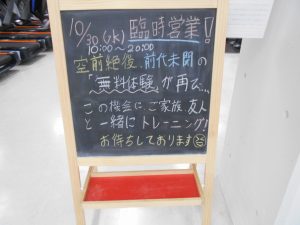 10/30(水)臨時営業!
10:00〜20:00
空前絶後、前代未聞の
「無料体験」が再び…
この機会に、ご家族、友人
と一緒にトレーニング!
お待ちしております